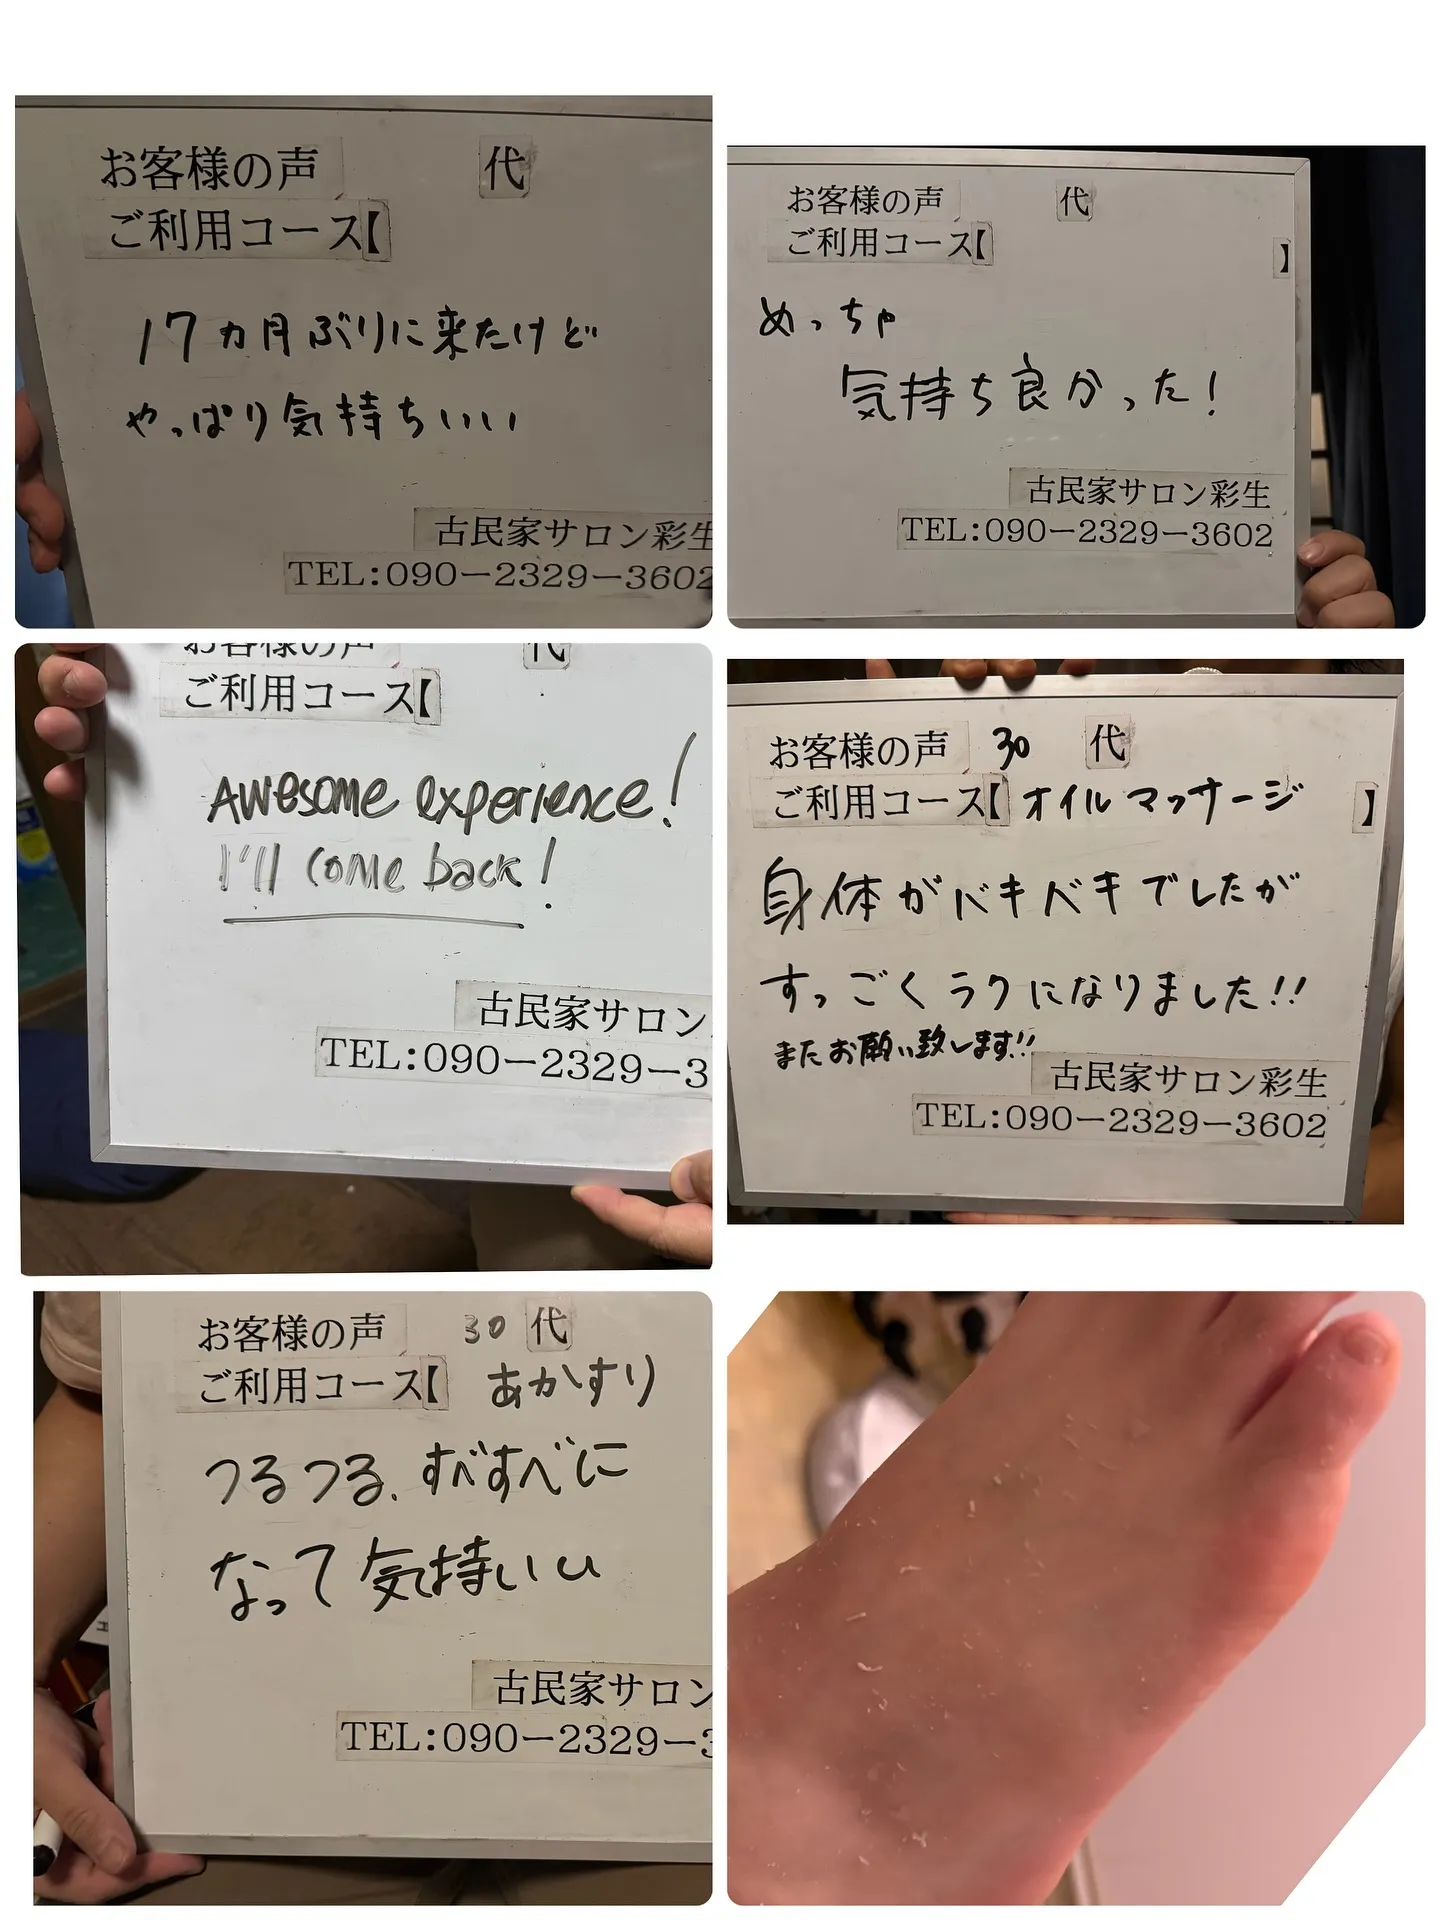 お客様の声 代
ご利用コース【
17ヵ月ぶりに来たけど
やっぱり気持ちいい
古民家サロン彩生
TEL:090ー2329ー3602
お客様の声 代
ご利用コース【 】
めっちゃ
気持ち良かった!
古民家サロン彩生
TEL:090ー2329ー3602
お客様の声 代
ご利用コース【
Awesome experience!
I'll come back!
古民家サロン
TEL:090ー2329ー3
お客様の声 30 代
ご利用コース【オイルマッサージ 】
身体がバキバキでしたが
すっごくラクになりました!!
またお願い致します!!
古民家サロン彩生
TEL:090ー2329ー3602
お客様の声 30 代
ご利用コース【 あかすり
つるつる、すべすべに
なって気持いい
古民家サロン
TEL:090ー2329ー3